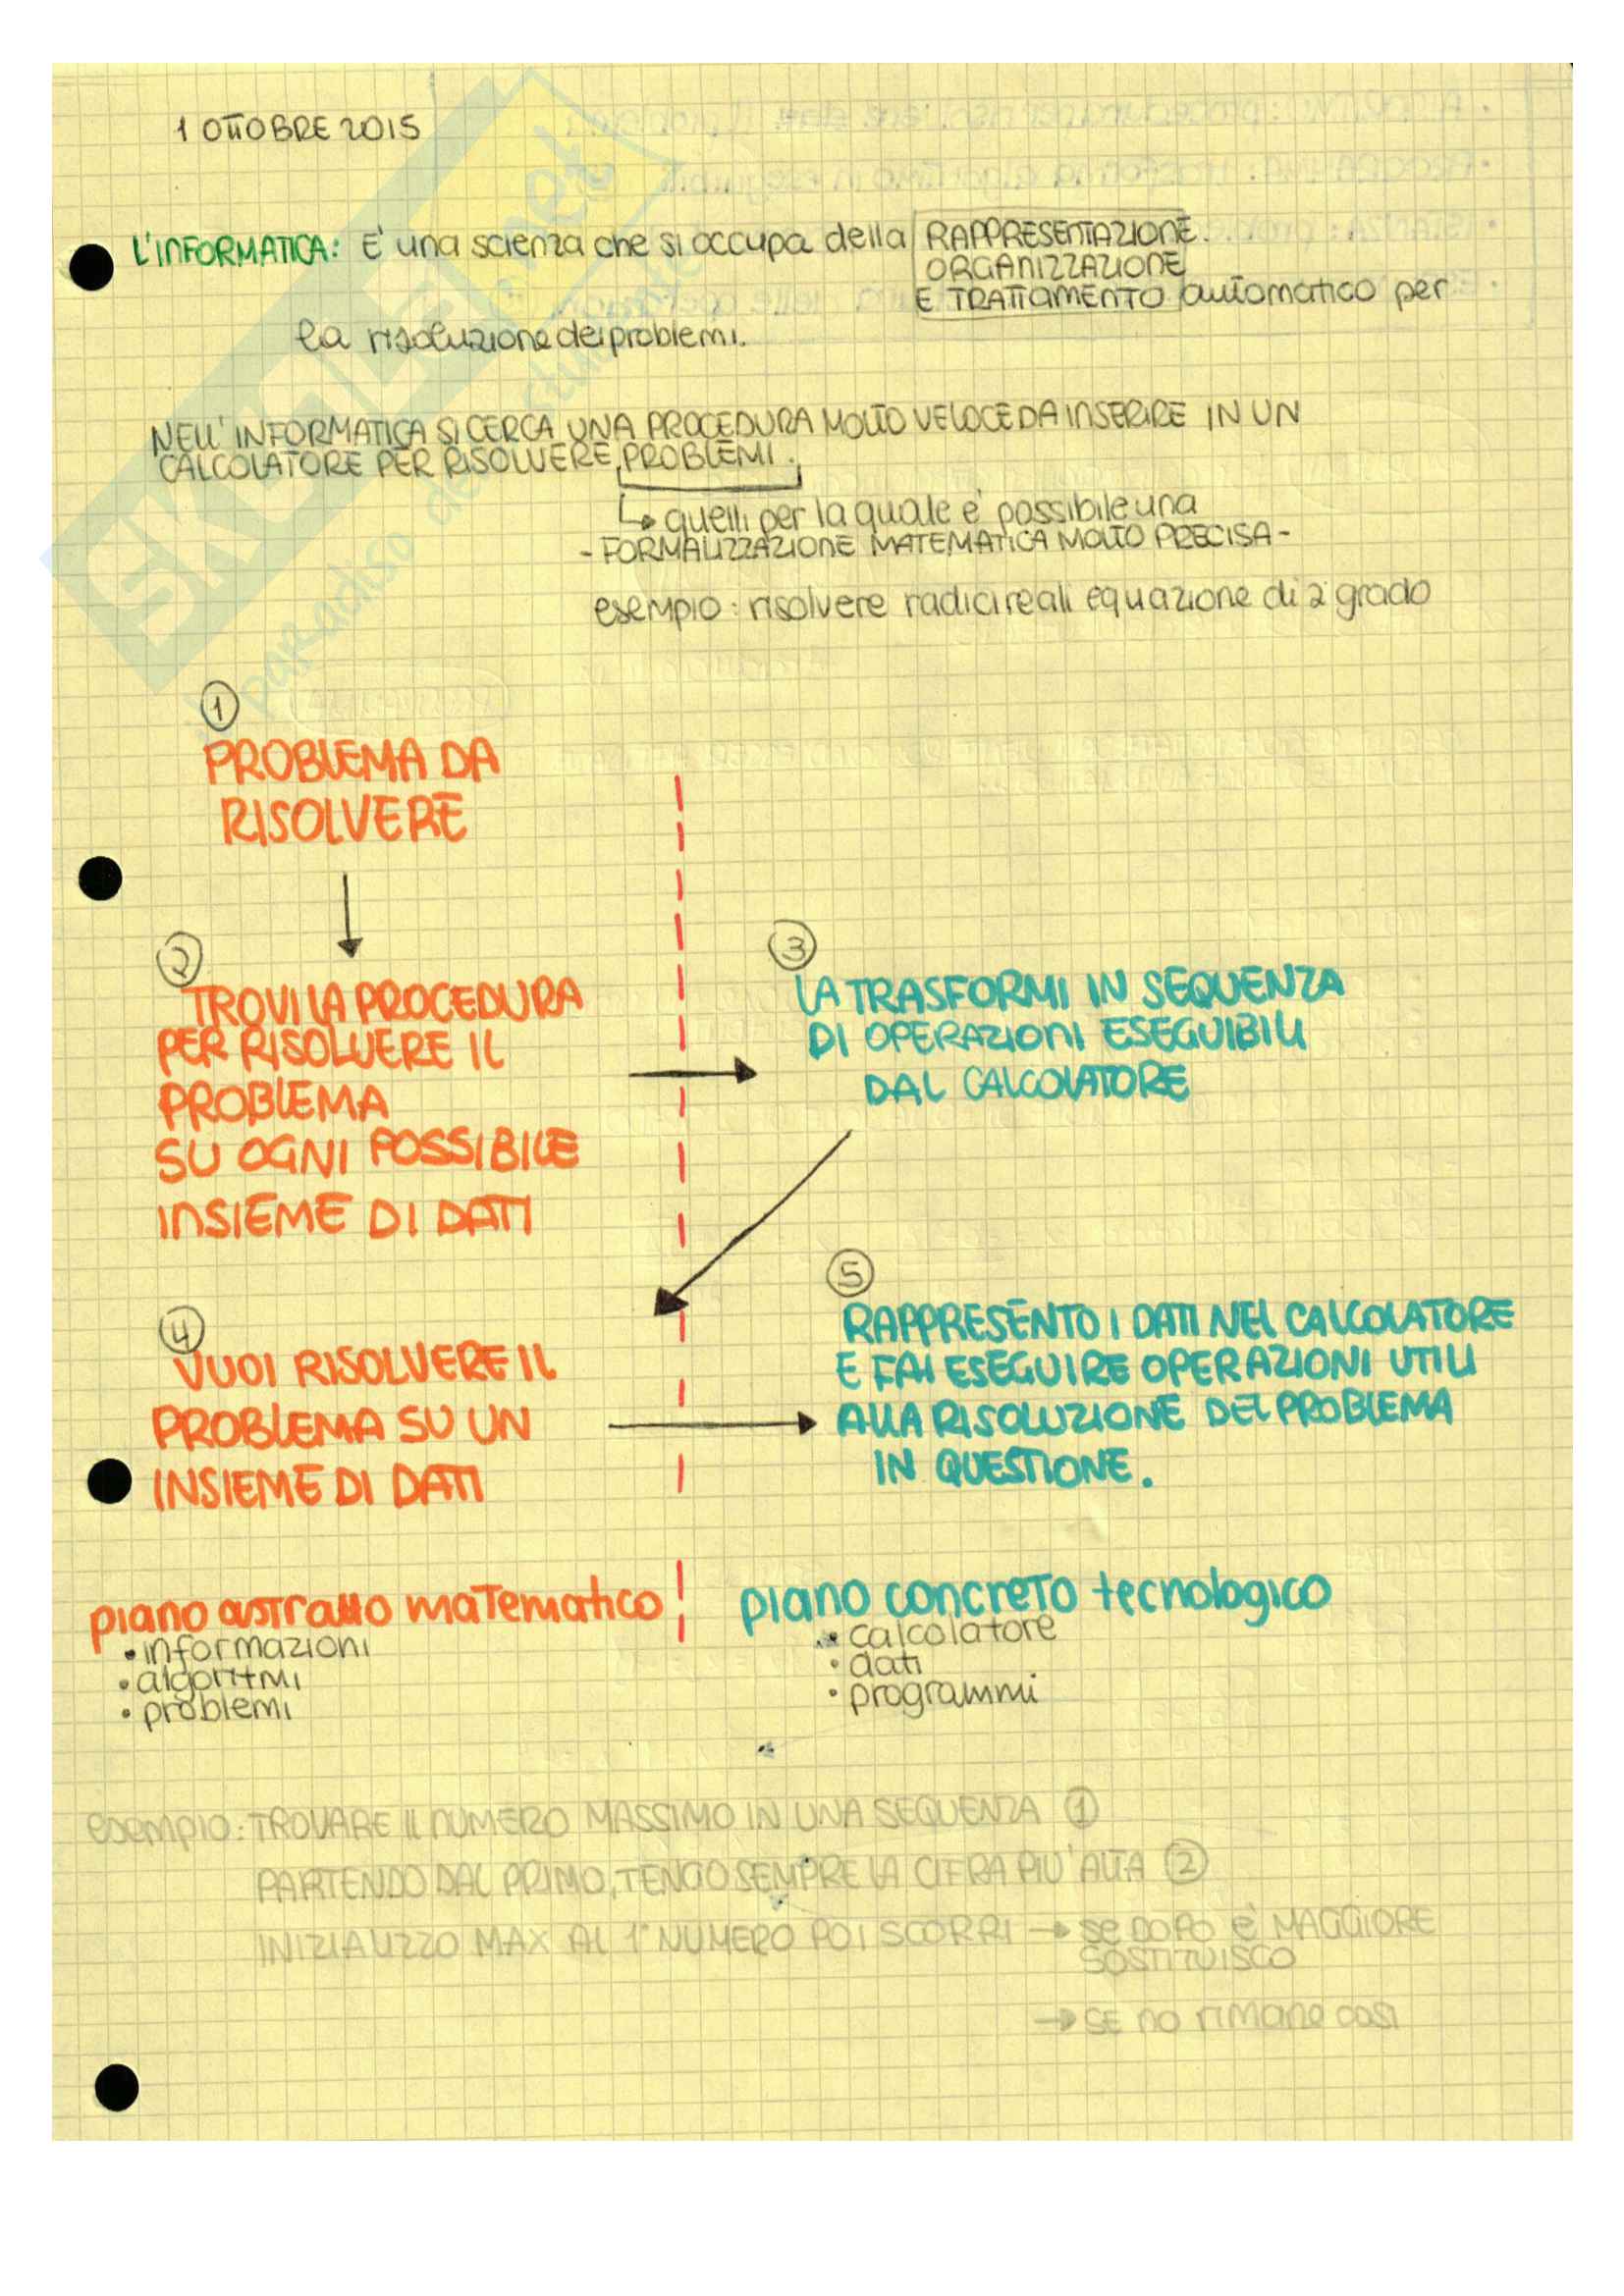 1 OTTOBRE 2015
L'INFORMATICA: E' una scienza che si occupa della RAPPRESENTAZIONE.
ORGANIZZAZIONE
E TRATTAMENTO automatico per
la risoluzione dei problemi.
NELL'INFORMATICA SI CERCA UNA PROCEDURA MOLTO VELOCE DA INSERIRE IN UN
CALCOLATORE PER RISOLVERE PROBLEMI.
↳ quelli per la quale e' possibile una
- FORMALIZZAZIONE MATEMATICA MOLTO PRECISA -
esempio: risolvere radici reali equazione di 2° grado
1
PROBLEMA DA
RISOLVERE
2
TROVI LA PROCEDURA
PER RISOLVERE IL
PROBLEMA
SU OGNI POSSIBILE
INSIEME DI DATI
3
LA TRASFORMI IN SEQUENZA
DI OPERAZIONI ESEGUIBILI
DAL CALCOLATORE
4
VUOI RISOLVERE IL
PROBLEMA SU UN
INSIEME DI DATI
5
RAPPRESENTO I DATI NEL CALCOLATORE
E FAI ESEGUIRE OPERAZIONI UTILI
ALLA RISOLUZIONE DEL PROBLEMA
IN QUESTIONE.
piano astratto matematico
• informazioni
• algoritmi
• problemi
piano concreto tecnologico
• calcolatore
• dati
• programmi
esempio: TROVARE IL NUMERO MASSIMO IN UNA SEQUENZA 1
PARTENDO DAL PRIMO, TENGO SEMPRE LA CIFRA PIU' ALTA 2
INIZIALIZZO MAX AL 1° NUMERO POI SCORRI → SE DOPO E' MAGGIORE
SOSTITUISCO
→ SE NO rimane così
SKUOLA.net